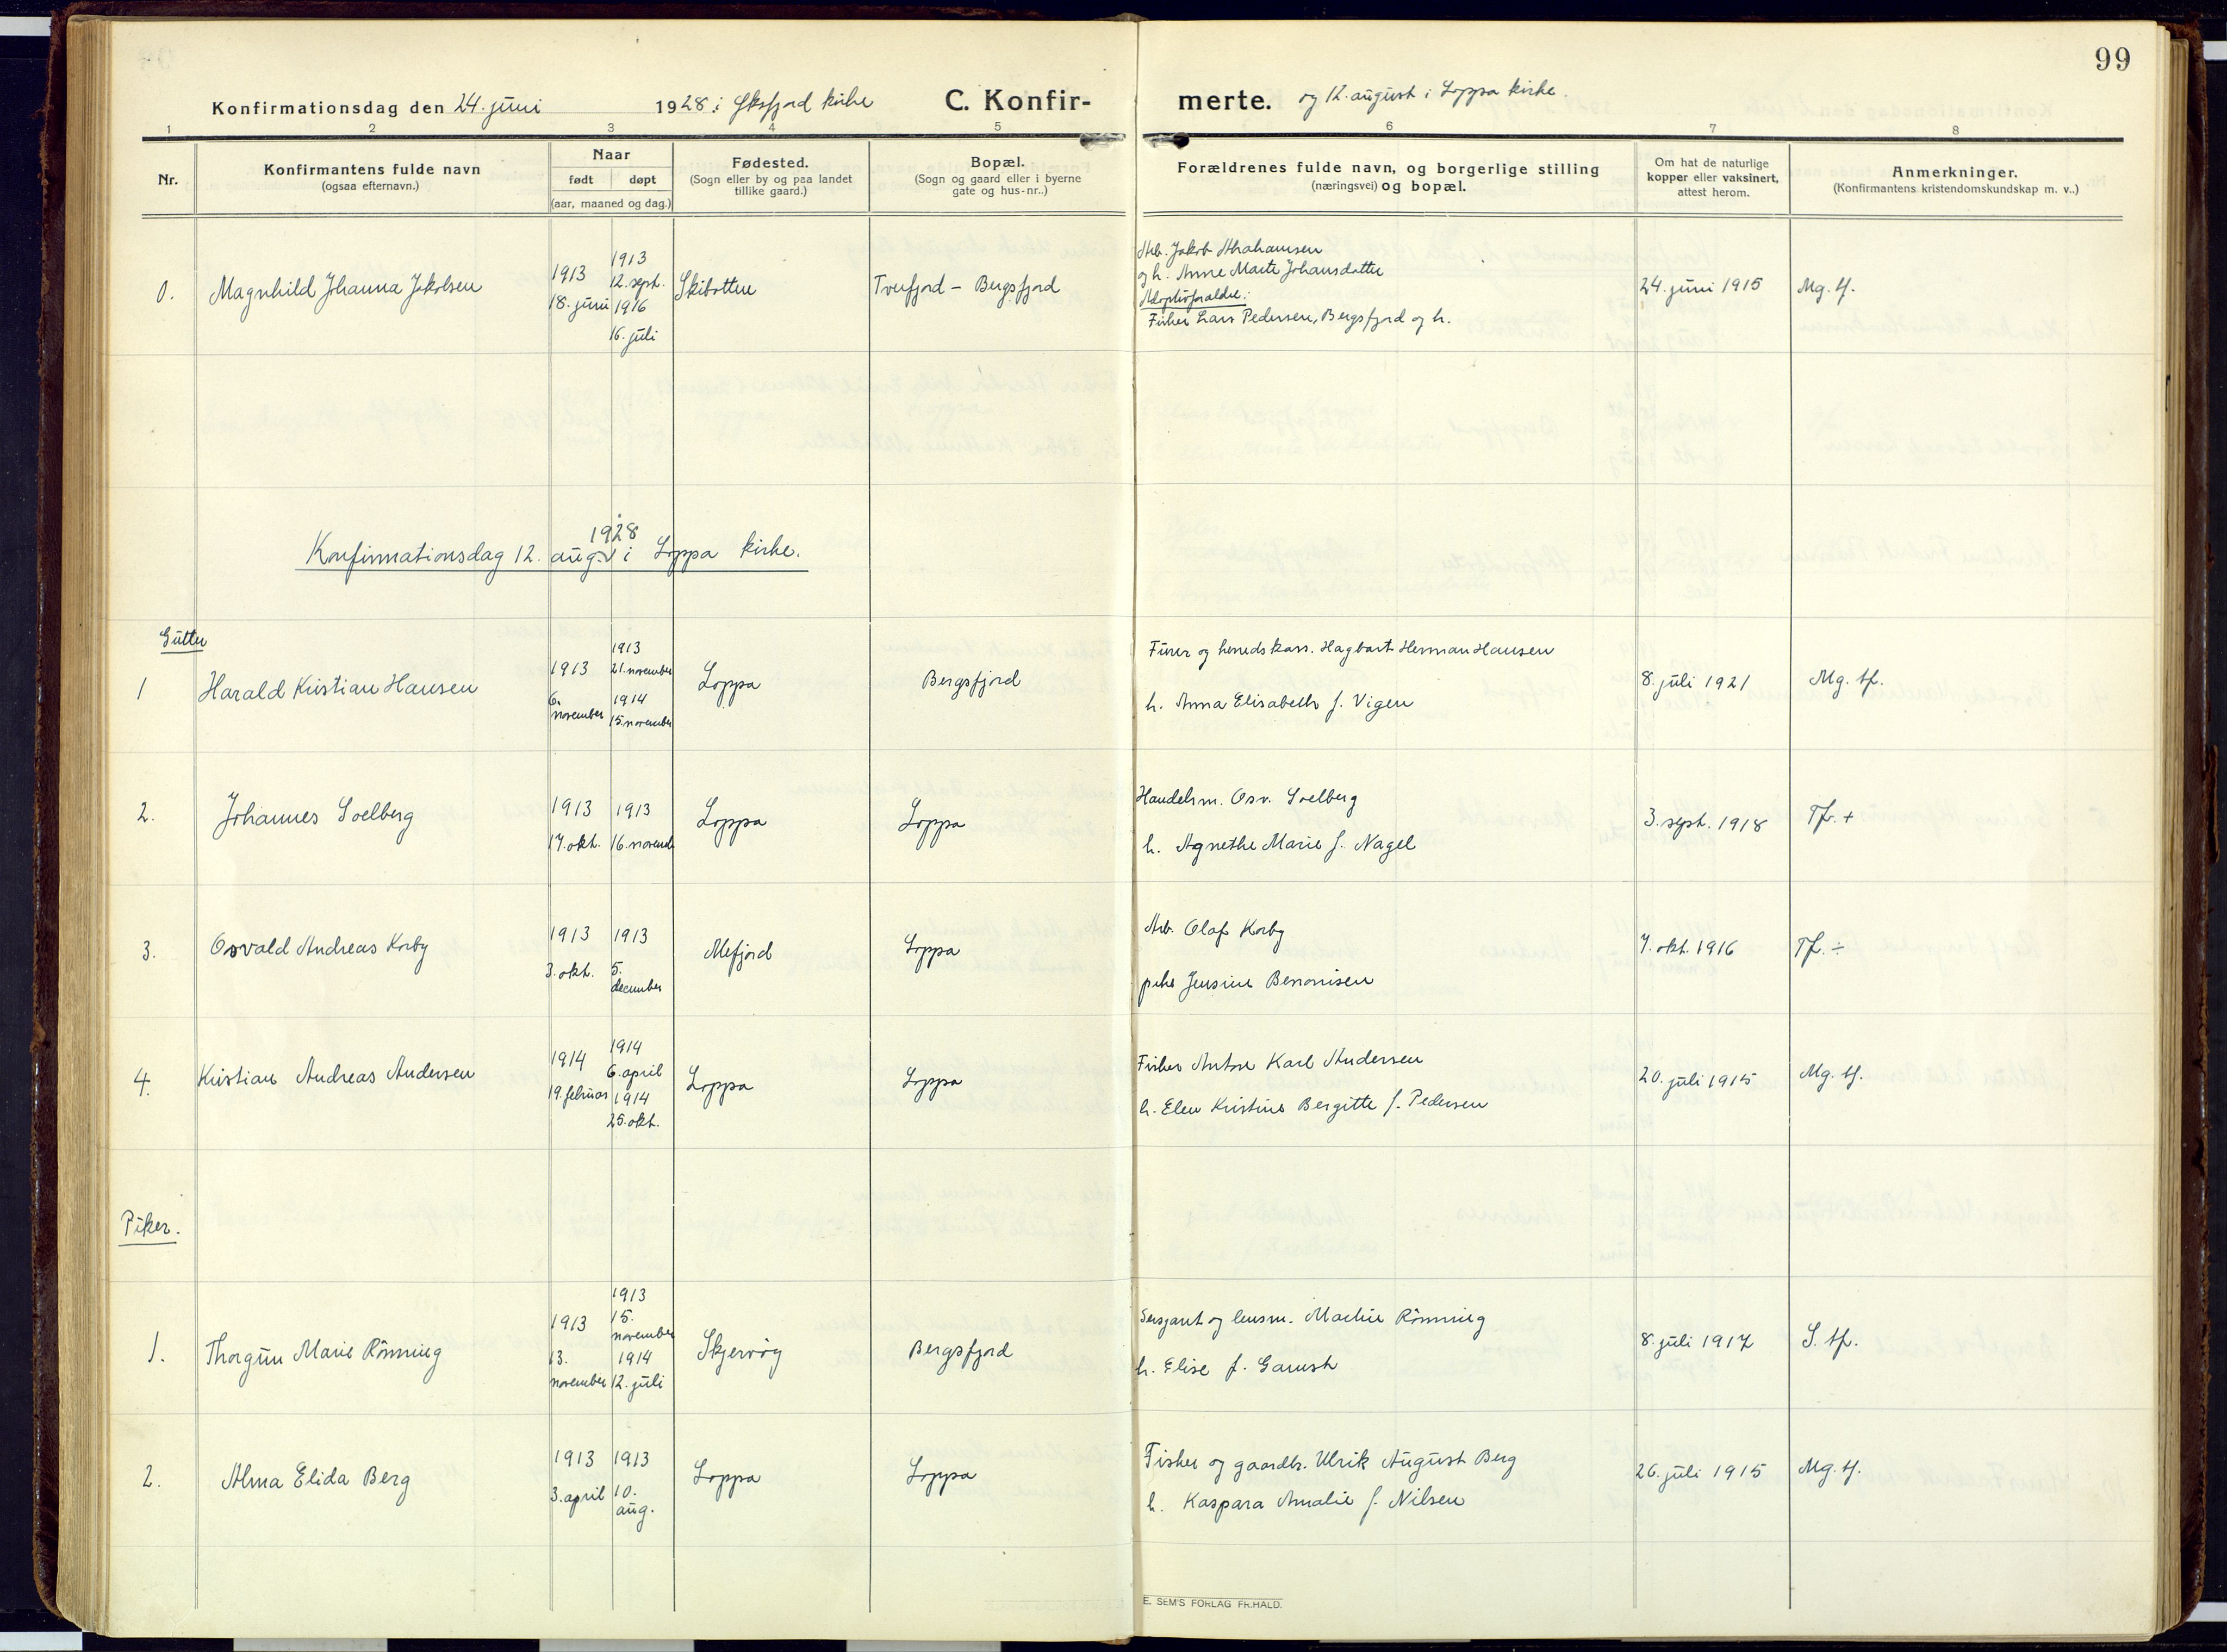 99
Konfirmationsdag den 24. juni 1928 i Øksfjord kirke C. Konfir-
merte. og 12. august i Loppa kirke.
1 2 3 4 5 6 7 8
Nr.
Konfirmantens fulde navn
(ogsaa efternavn.)
Naar
født døpt
(aar, maaned og dag.)
Fødested.
(Sogn eller by og paa landet
tillike gaard.)
Bopæl.
(Sogn og gaard eller i byerne
gate og hus-nr..)
Forældrenes fulde navn, og borgerlige stilling
(næringsvei) og bopæl.
Om hat de naturlige
kopper eller vaksinert,
attest herom.
Anmerkninger.
(Konfirmantens kristendomskundskap m. v..)
0. Magnhild Johanna Jakobsen
1913
18. juni
1913
12. sept.
1916
16. juli
Skibotten
Tverfjord - Bergsfjord
Arb. Jakob Abrahamsen
og h. Anne Marte Johansdatter
Adoptivforældre:
Fisker Lars Pedersen, Bergsfjord og h.
24. juni 1915
Mg. tf.
1928
Konfirmationsdag 12. aug. i Loppa kirke.
Gutter
1 Harald Kristian Hansen
1913
6.
november
1913
21. november
1914
15. november
Loppa
Bergsfjord
Furer og herredskass. Hagbart Herman Hansen
h. Anna Elisabeth f. Vigen
8. juli 1921
Mg. tf.
2. Johannes Soelberg
1913
17. okt.
1913
16. novemb
Loppa
Loppa
Handelsm. Osv. Soelberg
h. Agnethe Marie f. Nagel
3. sept. 1918
Tf. +
3. Osvald Andreas Korby
1913
3. okt.
1913
5.
december
Mefjord
Loppa
Arb. Olaf Korby
pike Jensine Benonisen
7. okt. 1916
Tf. ÷
4. Kristian Andreas Andersen
1914
19. februar
1914
6. april
1914
25. okt.
Loppa
Loppa
Fisker Anton Karl Andersen
h. Elen Kristine Bergitte f. Pedersen
20. juli 1915
Mg. tf.
Piker.
1. Thorgun Marie Rönning
1913
13.
november
1913
15.
november
1914
12. juli
Skjervøy
Bergsfjord
Sersjant og lensm. Martin Rönning
h. Elise f. Garush
8. juli 1917
S. tf.
2. Alma Elida Berg
1913
3. april
1913
10.
aug.
Loppa
Loppa
Fisker og gaardbr. Ulrik August Berg
h. Kaspara Amalie f. Nilsen
26. juli 1915
Mg. tf.
E. SEM'S FORLAG FR.HALD.